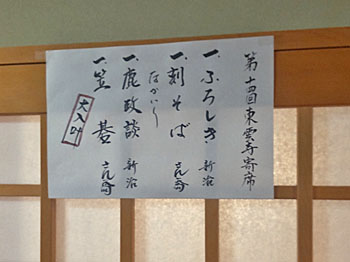 第十四回東雲寺寄席
一、ふろしき 新治
一、刻そば
なかいり
一、鹿政談 新治
一、笠碁
大入叶